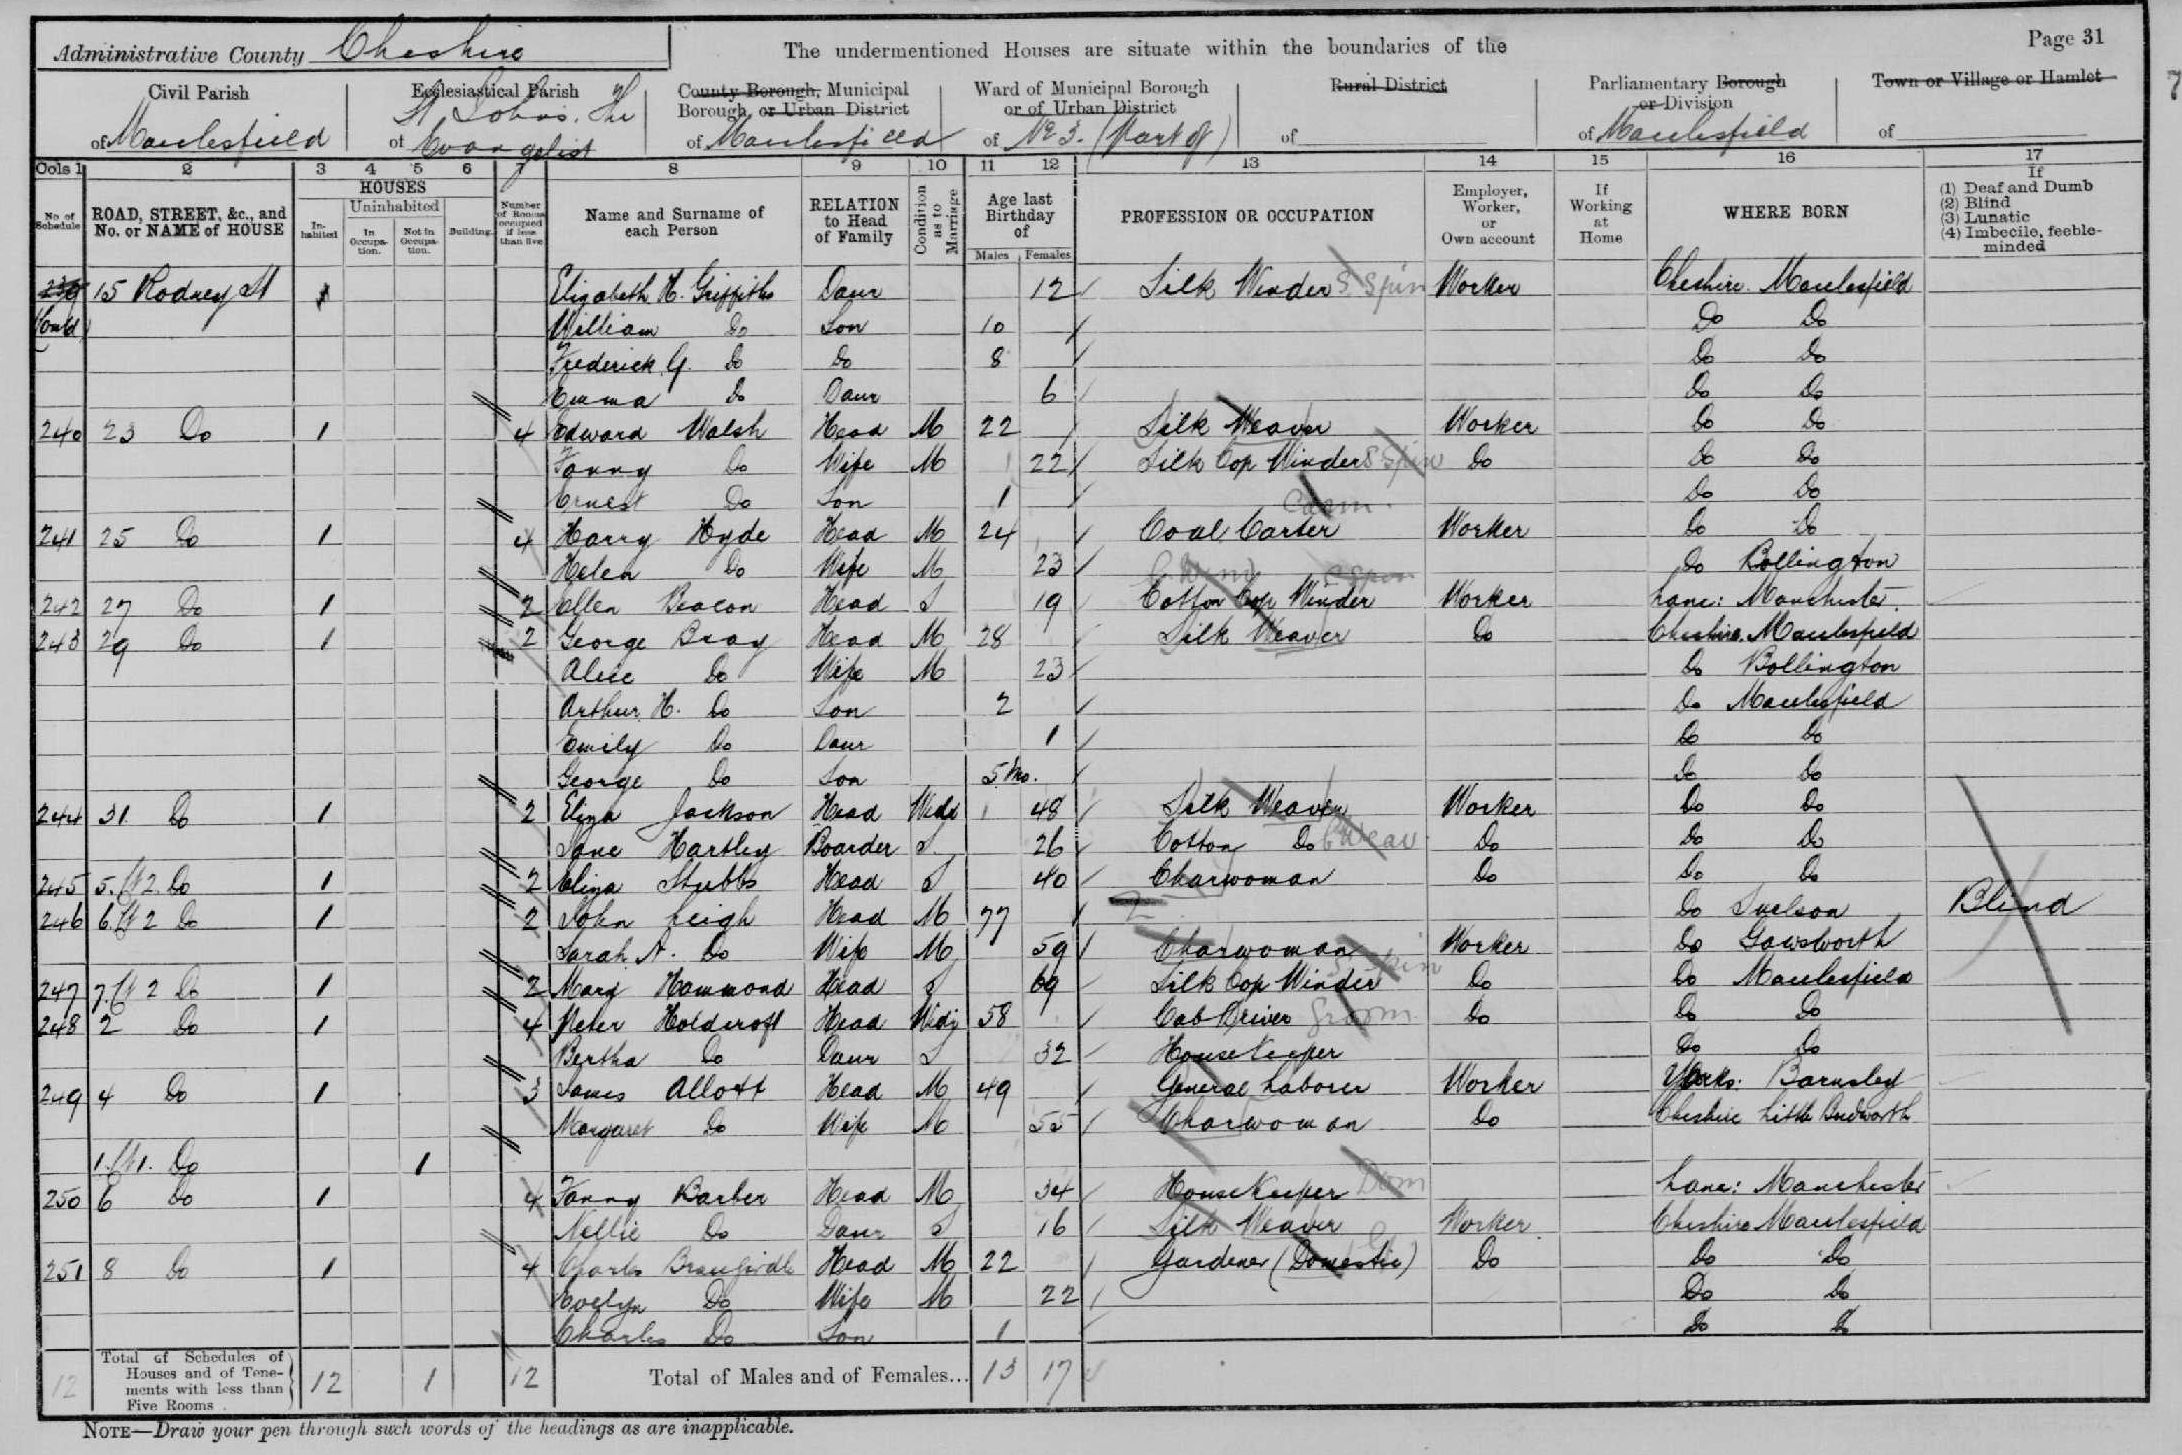 Administrative County Cheshire
The undermentioned Houses are situate within the boundaries of the
Page 31
Civil Parish of Macclesfield
Ecclesiastical Parish of St Johns. The Evangelist
County Borough, Municipal Borough, or Urban District of Macclesfield
Ward of Municipal Borough or of Urban District of No 3. (Part of)
Rural District of
Parliamentary Borough or Division of Macclesfield
Town or Village or Hamlet of
Cols 1 2 3 4 5 6 7 8 9 10 11 12 13 14 15 16 17
No. of Schedule
ROAD, STREET, &c., and No. or NAME of HOUSE
HOUSES
Inhabited
Uninhabited
In Occupation.
Not in Occupation.
Building.
Number of Rooms occupied if less than five
Name and Surname of each Person
RELATION to Head of Family
Condition as to Marriage
Age last Birthday of
Males Females
PROFESSION OR OCCUPATION
Employer, Worker, or Own account
If Working at Home
WHERE BORN
If
(1) Deaf and Dumb
(2) Blind
(3) Lunatic
(4) Imbecile, feeble-minded
239 15 Rodney St Elizabeth H. Griffiths Daur 12 Silk Winder S Spin Worker Cheshire. Macclesfield
(Contd) William Do Son 10 Do Do
Frederick G. Do Do 8 Do Do
Emma Do Daur 6 Do Do
240 23 Do 1 4 Edward Walsh Head M 22 Silk Weaver Worker Do Do
Fanny Do Wife M 22 Silk Cop Winder S Spin Do Do Do
Ernest Do Son 1 Do Do
241 25 Do 1 4 Harry Hyde Head M 24 Coal Carter Worker Do Do
Helen Do Wife M 23 Do Bollington
242 27 Do 1 2 Ellen Beacon Head S 19 Cotton Cop Winder Worker Lanc: Manchester.
243 29 Do 1 2 George Bray Head M 28 Silk Weaver Do Cheshire. Macclesfield
Alice Do Wife M 23 Do Bollington
Arthur. H. Do Son 2 Do Macclesfield
Emily Do Daur 1 Do Do
George Do Son 5 Mo. Do Do
244 31 Do 1 2 Eliza Jackson Head Widd 48 Silk Weaver Worker Do Do
Jane Hartley Boarder S. 26 Cotton Do C Weav. Do Do Do
245 5. Ct 2. Do 1 2 Eliza Stubbs Head S 40 Charwoman Do Do Do
246 6. Ct 2 Do 1 2 John Leigh Head M 77 Do Snelson Blind
Sarah A. Do Wife M 59 Charwoman Worker Do Gawsworth
247 7. Ct 2 Do 1 2 Mary Hammond Head S 69 Silk Cop Winder S Spin Do Do Macclesfield
248 2 Do 1 4 Peter Holdcroft Head Widr 58 Cab Driver Groom Do Do Do
Bertha Do Daur S 32 Housekeeper Do Do
249 4 Do 1 3 James Allott Head M 49 General Laborer Worker Yorks: Barnsley
Margaret Do Wife M 55 Charwoman Do Cheshire Little Budworth
1. Ct 1. Do 1
250 6 Do 1 4 Fanny Barber Head M 34 Housekeeper Dom Lanc: Manchester
Nellie Do Daur S 16 Silk Weaver Worker. Cheshire Macclesfield
251 8 Do 1 4 Charles Head M 22 Gardener (Domestic) Do Do Do
Evelyn Do Wife M 22 Do Do
Charles Do Son 1 Do Do
12 Total of Schedules of Houses and of Tenements with less than Five Rooms 12 1 12 Total of Males and of Females... 13 17
NOTE—Draw your pen through such words of the headings as are inapplicable.